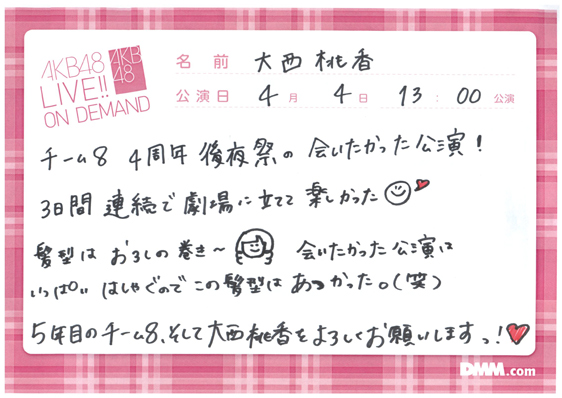 AKB48
LIVE!!
ON DEMAND
AKB
48
名前 大西桃香
公演日 4月 4日 13:00公演
チーム8 4周年 後夜祭の 会いたかった公演!
3日間 連続で 劇場に立てて 楽しかった
髪型は おろしの巻き〜 会いたかった公演は
いっぱい はしゃぐので この髪型は あつかった。(笑)
5年目のチーム8、そして大西桃香をよろしくお願いしますっ!
DMM.com